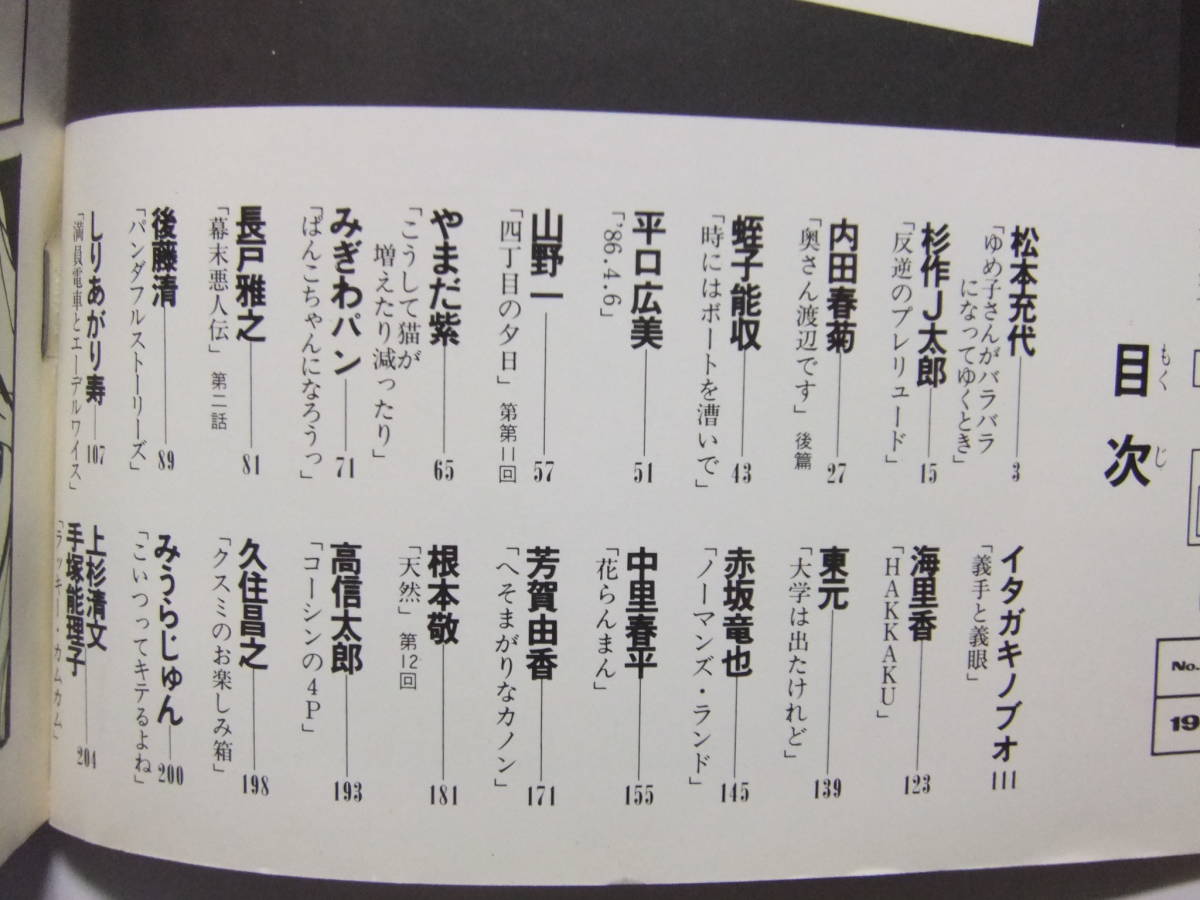 目次
もくじ
松本充代
「ゆめ子さんがバラバラ
になってゆくとき」
3
杉作J太郎
「反逆のプレリュード」
15
内田春菊
「奥さん渡辺です」後篇
27
蛭子能収
「時にはボートを漕いで」
43
平口広美
「'86.4.6」
51
山野一
「四丁目の夕日」第第11回
57
やまだ紫
「こうして猫が
増えたり減ったり」
65
みぎわパン
「ぱんこちゃんになろうっ」
71
長戸雅之
「幕末悪人伝」第二話
81
後藤清
「パンダフルストーリーズ」
89
しりあがり寿
「満員電車とエーデルワイス」
107
イタガキノブオ
「義手と義眼」
111
海里香
「HAKKAKU」
123
東元
「大学は出たけれど」
139
赤坂竜也
「ノーマンズ・ランド」
145
中里春平
「花らんまん」
155
芳賀由香
「へそまがりなカノン」
171
根本敬
「天然」第12回
181
高信太郎
「コーシンの4P」
193
久住昌之
「クスミのお楽しみ箱」
198
みうらじゅん
「こいつってキテるよね」
200
上杉清文
手塚能理子
「ラッキー・カムカム」
204
No.
19